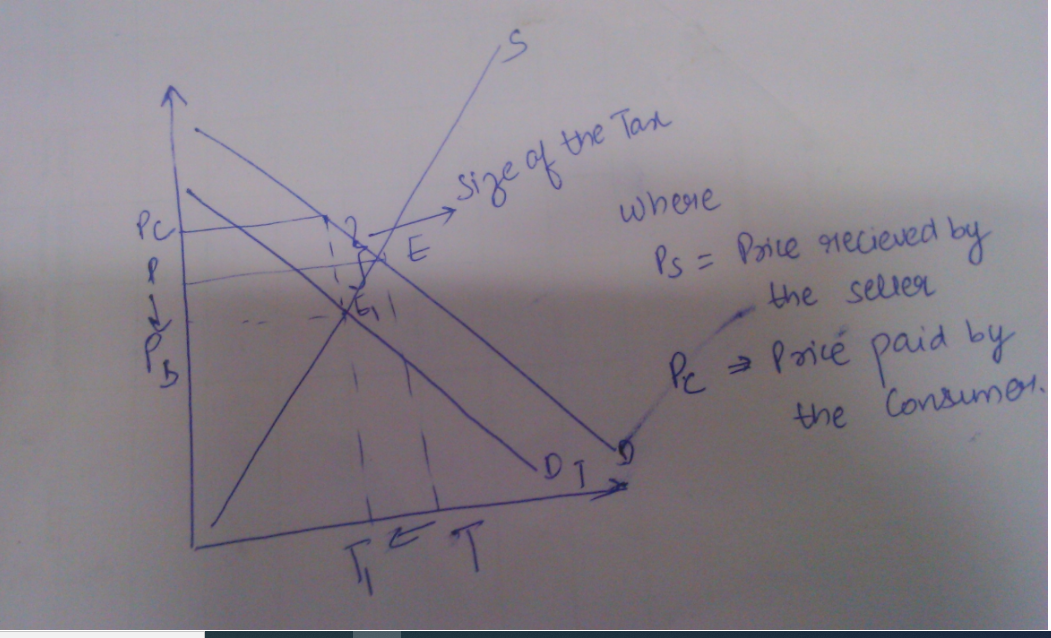 S
Size of the Tax
where
Pc
E
Ps = Price recieved by
the seller
P
E1
Pc ⇒ Price paid by
the Consumer.
D
D1
T1 ← T